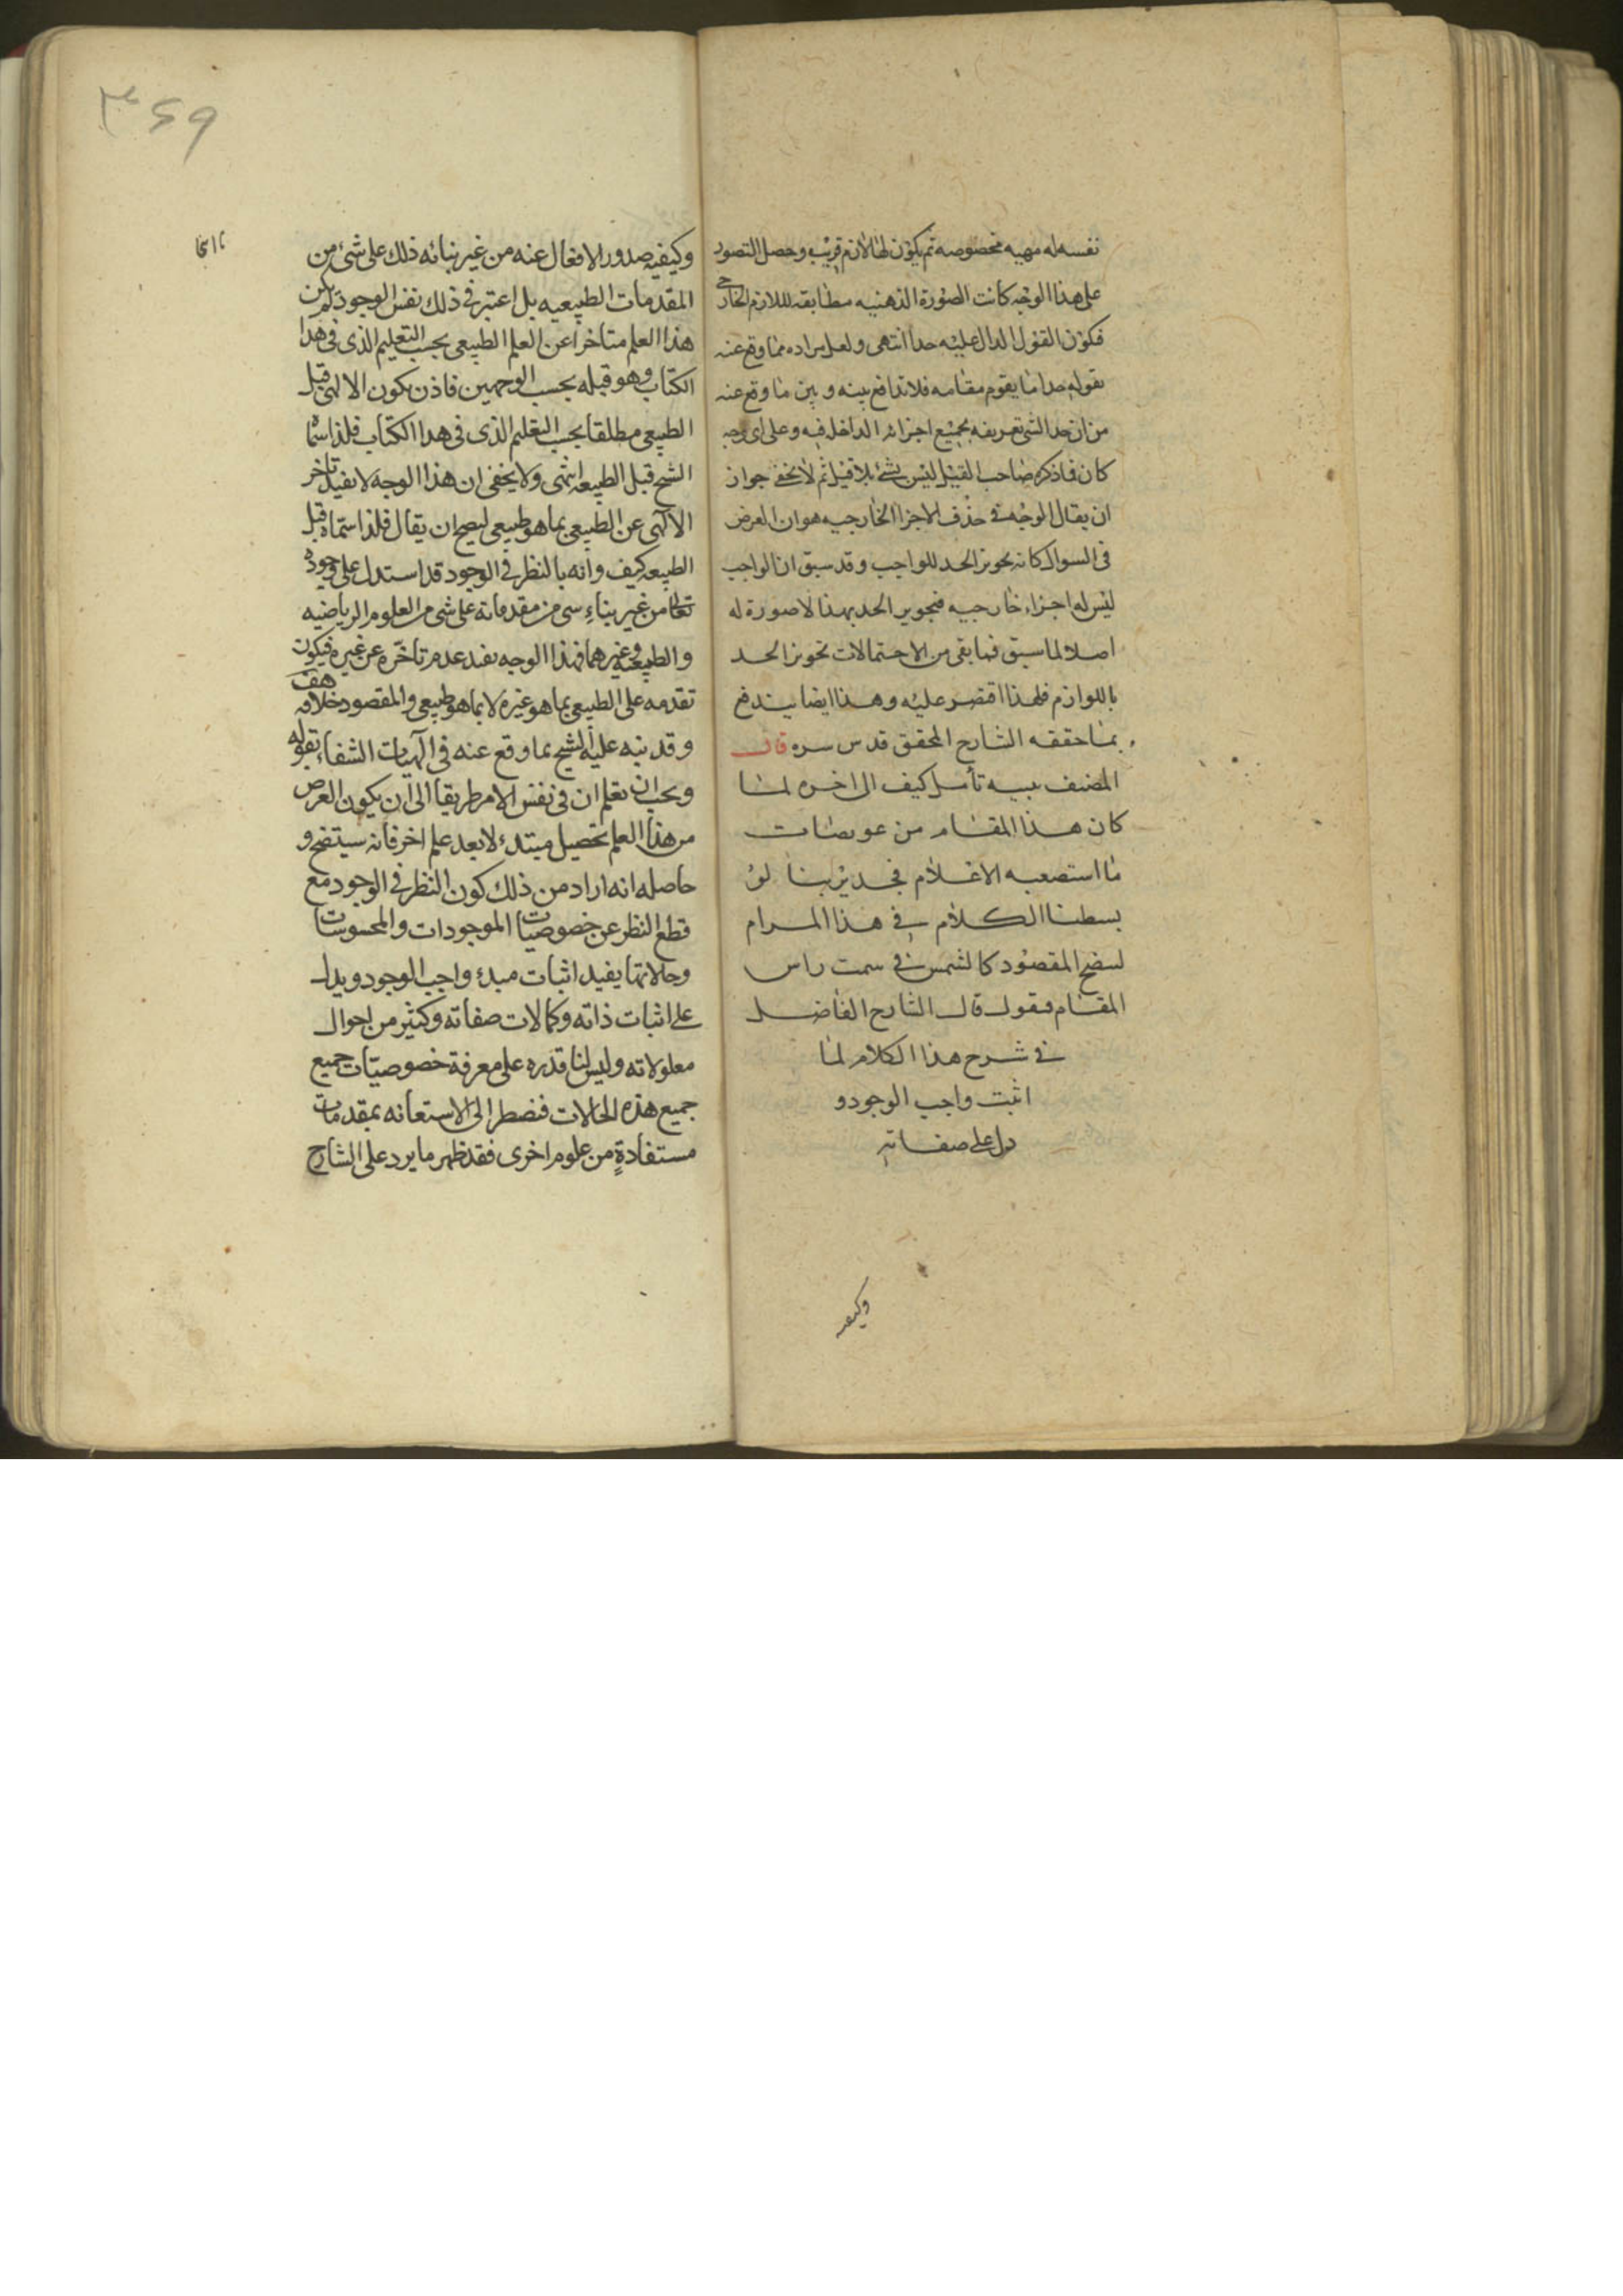 نفسه له مهيه مخصوصه ثم يكون لها لازم قريب وحصل التصور
على هذا الوجه كانت الصورة الذهنيه مطابقه لللازم الخارجى
فكون القول الدال عليه حدا انتهى ولعل مراده مما وقع عنه
بقوله حدا ما يقوم مقامه فلا تدافع بينه وبين ما وقع عنه
من ان حد الشى تعريفه بجميع اجزائه الداخله فيه وعلى اى وجه
كان فما ذكره صاحب القيل ليس بشئ بلا قيل ثم لا يخفى جواز
ان يقال الوجه فى حذف الاجزا الخارجيه هو ان الغرض
فى السوال كانه تجويز الحد للواجب وقد سبق ان الواجب
ليس له اجزاء خارجيه فتجويز الحد بهذا لا صورة له
اصلا لما سبق فما بقى من الاحتمالات تجويز الحد
باللوازم فلهذا اقتصر عليه وهذا ايضا يندفع
بما حققه الشارح المحقق قدس سره قال
المصنف تنبيه تأمل كيف الى اخره لما
كان هذا المقام من عويصات
ما استصعبه الاعلام فجدير بنا لو
بسطنا الكلام فى هذا المرام
ليتضح المقصود كالشمس فى سمت راس
المقام فنقول قال الشارح الفاضل
فى شرح هذا الكلام لما
اثبت واجب الوجود و
دل على صفاته
وكيفيه
٣٤٩
وكيفيه صدور الافعال عنه من غير بنائه ذلك على شئ من
المقدمات الطبيعيه بل اعتبر فى ذلك نفس الوجود لم يكن
هذا العلم متاخرا عن العلم الطبيعى بحسب التعليم الذى فى هذا
الكتاب وهو قبله بحسب الوجهين فاذن يكون الالهى قبل
الطبيعى مطلقا بحسب التعليم الذى فى هذا الكتاب فلذا سماه
الشيخ قبل الطبيعه انتهى ولا يخفى ان هذا الوجه لا يفيد تاخر
الالهى عن الطبيعى بما هو طبيعى ليصح ان يقال فلذا سماه قبل
الطبيعه كيف وانه بالنظر فى الوجود قد استدل على وجوده
تعالى من غير بناء شى من مقدماته على شى من العلوم الرياضيه
والطبيعيه وغيرهما فهذا الوجه يفيد عدم تاخره عن غيره فيكون
تقدمه على الطبيعى بما هو غيره لا بما هو طبيعى والمقصود خلافه هف
وقد نبه عليه الشيخ بما وقع عنه فى الهيات الشفاء بقوله
ويجب ان تعلم ان فى نفس الامر طريقا الى ان يكون الغرض
من هذا العلم تحصيل مبتدء لا بعد علم اخر فانه سيتضح و
حاصله انه اراد من ذلك كون النظر فى الوجود مع
قطع النظر عن خصوصيات الموجودات والمحسوسات
وحالاتها يفيد اثبات مبدء واجب الوجود ويدل
على اثبات ذاته وكمالات صفاته وكثير من احوال
معلولاته وليس لنا قدره على معرفة خصوصيات جميع
جميع هذه الحالات فنضطر الى الاستعانه بمقدمات
مستفادةٍ من علوم اخرى فقد ظهر ما يرد على الشارح